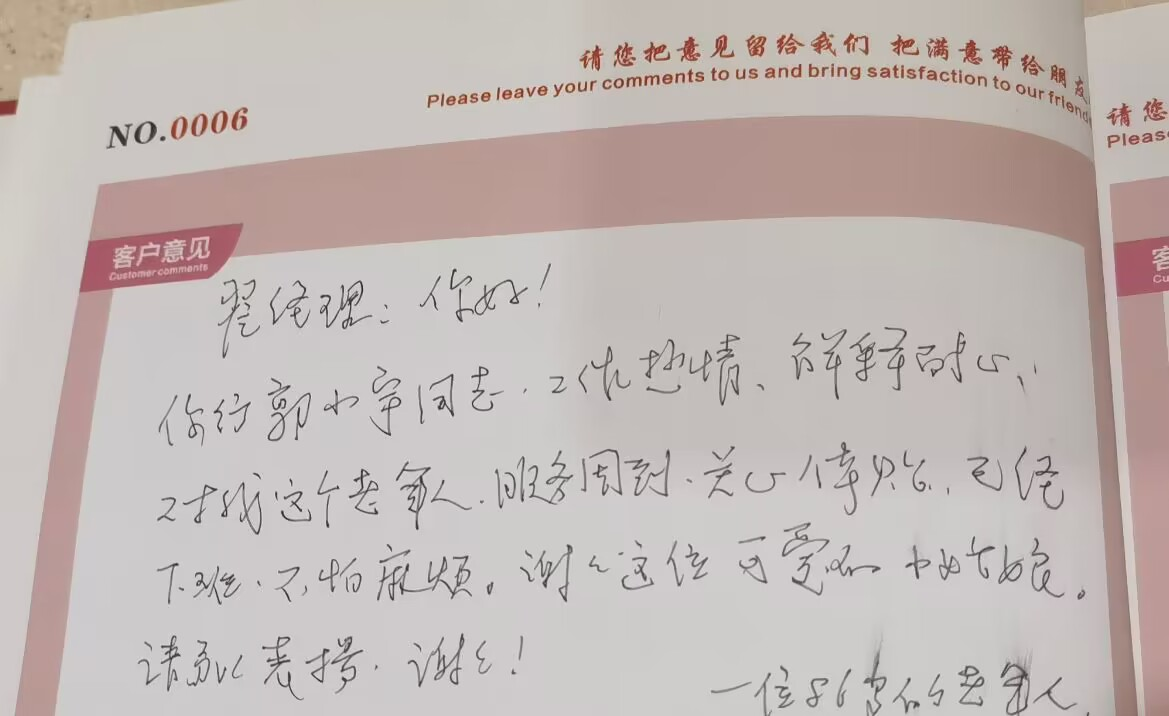 请您把意见留给我们 把满意带给朋友
Please leave your comments to us and bring satisfaction to our friend
NO.0006
请您
Pleas
客户意见
Customer comments
客
Cu
翟经理：你好！
你行郭小宇同志，工作热情、解释耐心，
对我这个老年人，服务周到、关心体贴，已经
下班，不怕麻烦。谢谢这位可爱的小姑娘。
请予以表扬，谢谢！
一位86岁的老年人